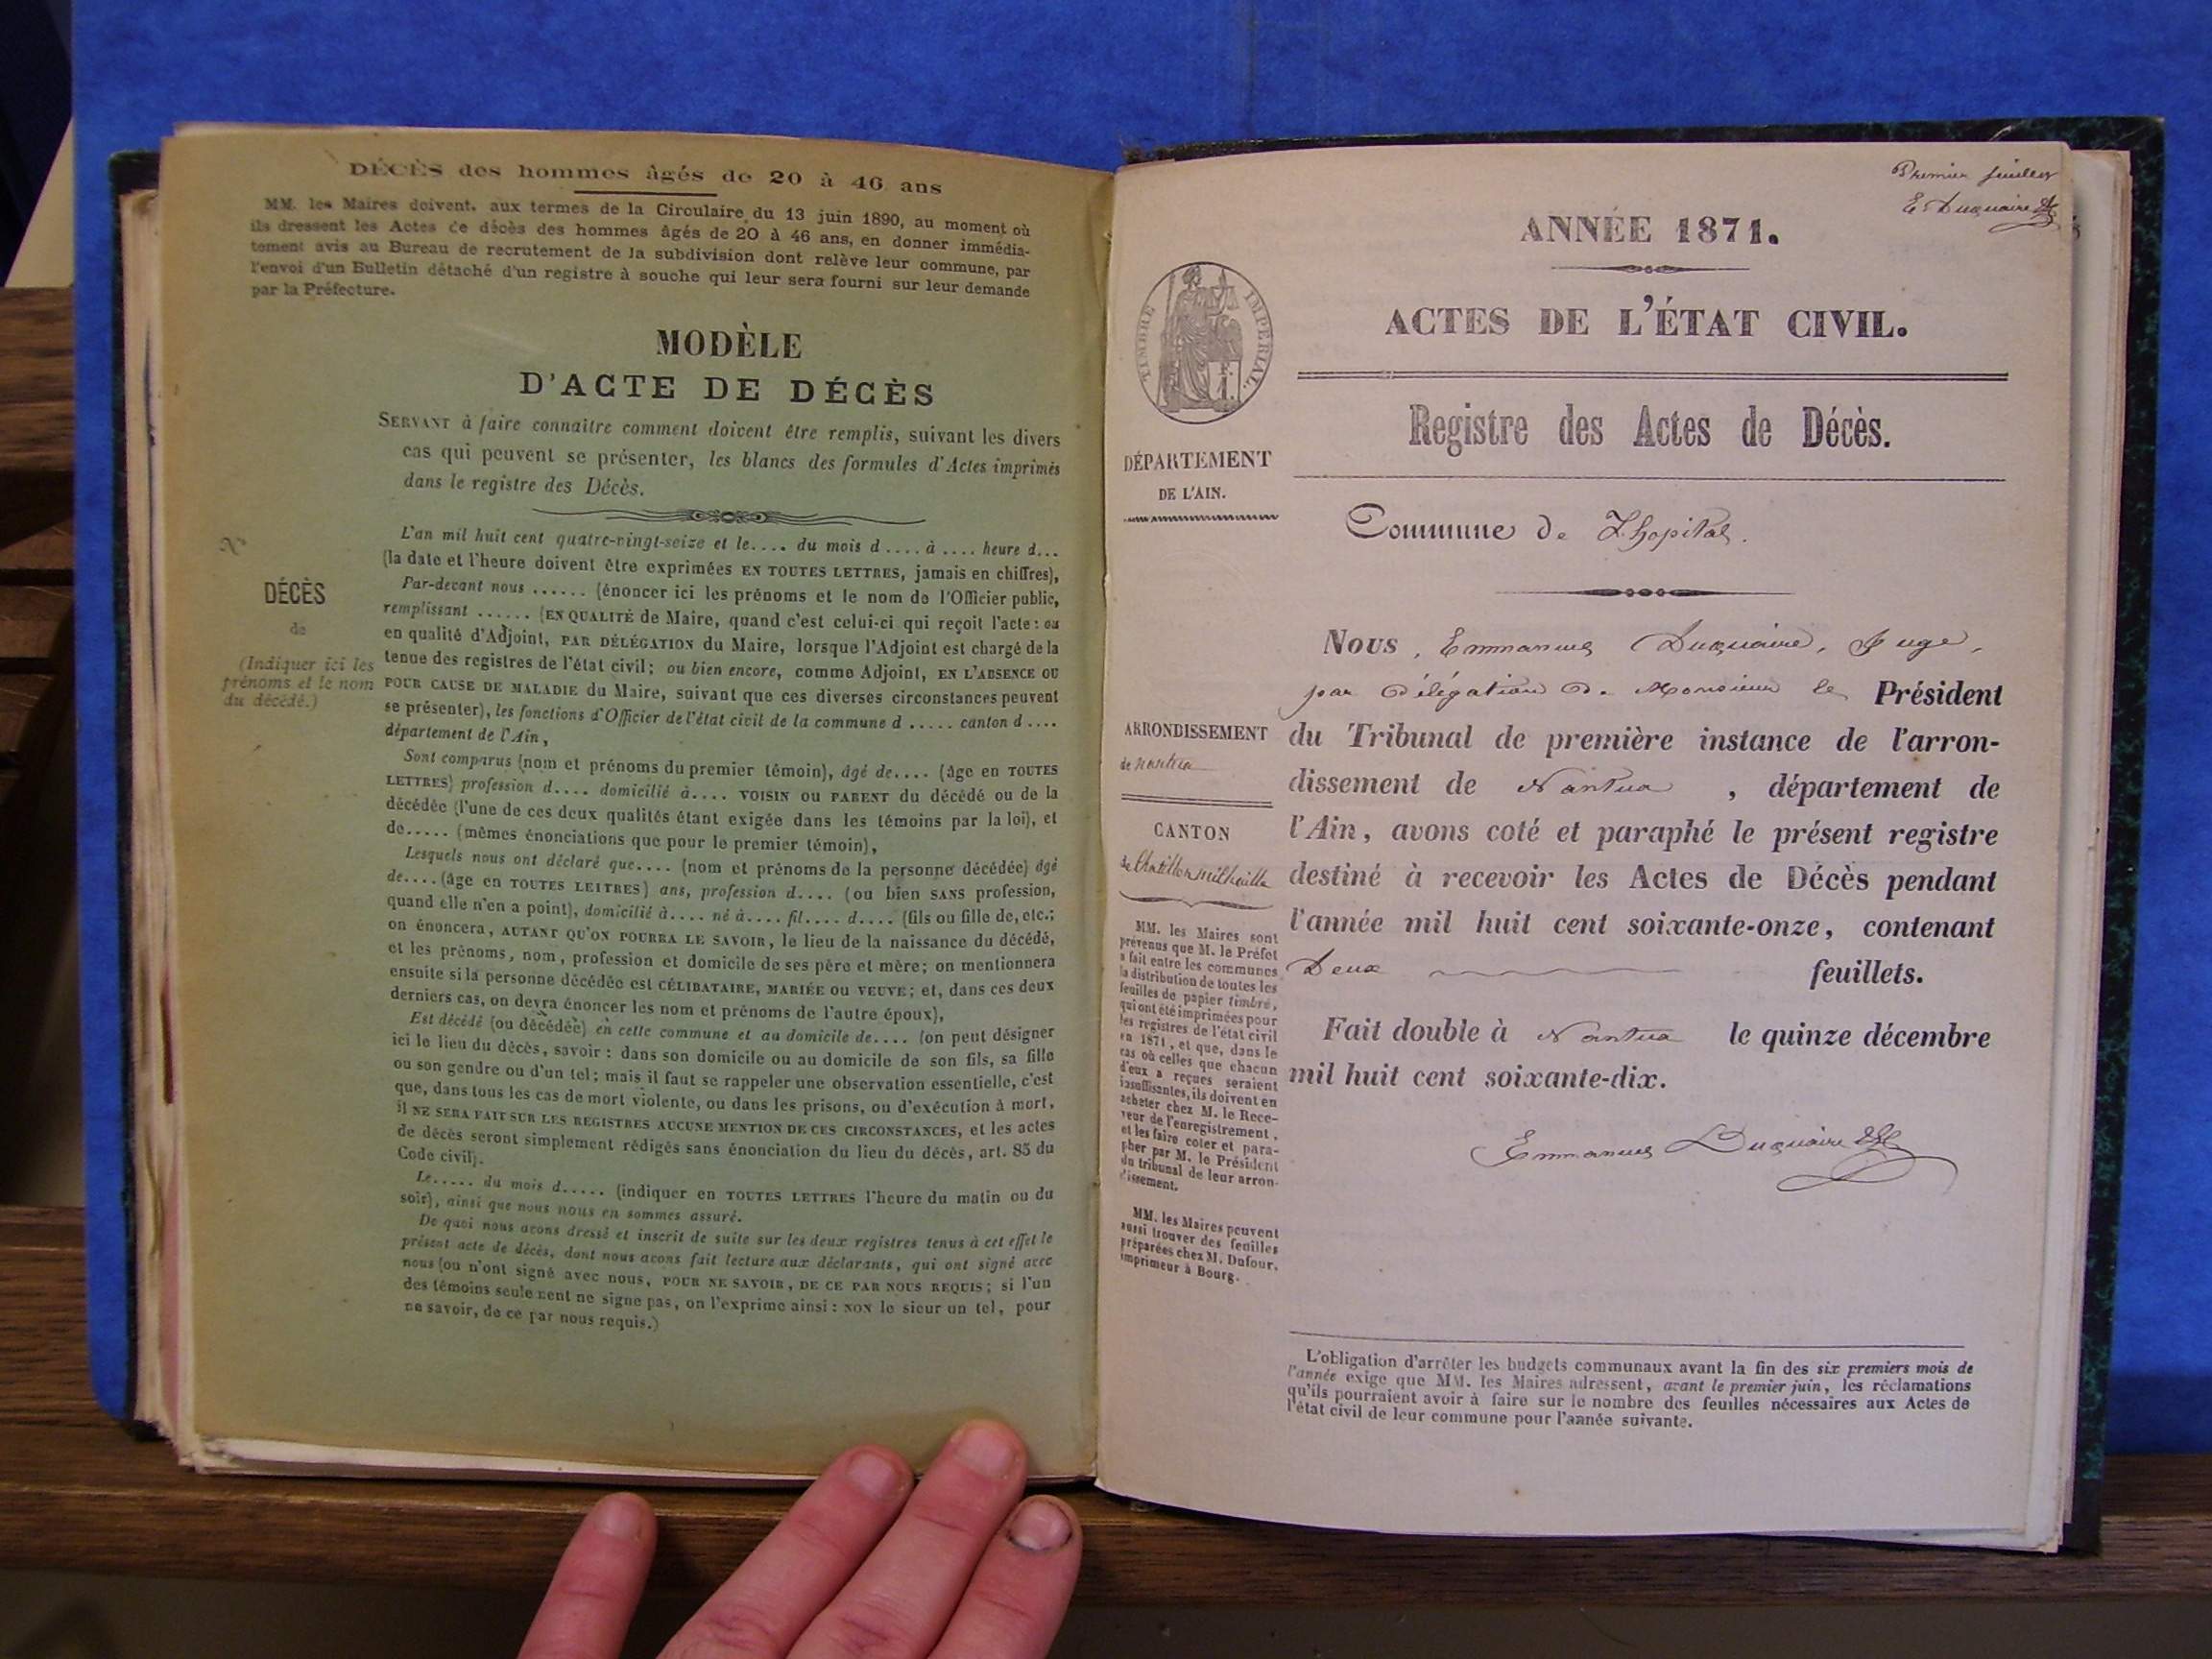 DÉCÈS des hommes âgés de 20 à 46 ans
MM. les Maires doivent, aux termes de la Circulaire du 13 juin 1890, au moment où
ils dressent les Actes de décès des hommes âgés de 20 à 46 ans, en donner immédia-
tement avis au Bureau de recrutement de la subdivision dont relève leur commune, par
l'envoi d'un Bulletin détaché d'un registre à souche qui leur sera fourni sur leur demande
par la Préfecture.
MODÈLE
D'ACTE DE DÉCÈS
SERVANT à faire connaître comment doivent être remplis, suivant les divers
cas qui peuvent se présenter, les blancs des formules d'Actes imprimés
dans le registre des Décès.
N°
DÉCÈS
de
(Indiquer ici les
prénoms et le nom
du décédé.)
L'an mil huit cent quatre-vingt-seize et le.... du mois d .... à .... heure d...
(la date et l'heure doivent être exprimées EN TOUTES LETTRES, jamais en chiffres),
Par-devant nous ...... (énoncer ici les prénoms et le nom de l'Officier public,
remplissant ...... (EN QUALITÉ de Maire, quand c'est celui-ci qui reçoit l'acte: ou
en qualité d'Adjoint, PAR DÉLÉGATION du Maire, lorsque l'Adjoint est chargé de la
tenue des registres de l'état civil; ou bien encore, comme Adjoint, EN L'ABSENCE OU
POUR CAUSE DE MALADIE du Maire, suivant que ces diverses circonstances peuvent
se présenter), les fonctions d'Officier de l'état civil de la commune d ..... canton d ....
département de l'Ain,
Sont comparus (nom et prénoms du premier témoin), âgé de.... (âge en TOUTES
LETTRES) profession d.... domicilié à.... VOISIN OU PARENT du décédé ou de la
décédée (l'une de ces deux qualités étant exigée dans les témoins par la loi), et
de..... (mêmes énonciations que pour le premier témoin),
Lesquels nous ont déclaré que.... (nom et prénoms de la personne décédée) âgé
de.... (âge en TOUTES LETTRES) ans, profession d.... (ou bien SANS profession,
quand elle n'en a point), domicilié à.... né à.... fil.... d.... (fils ou fille de, etc.;
on énoncera, AUTANT QU'ON POURRA LE SAVOIR, le lieu de la naissance du décédé,
et les prénoms, nom, profession et domicile de ses père et mère; on mentionnera
ensuite si la personne décédée est CÉLIBATAIRE, MARIÉE OU VEUVE; et, dans ces deux
derniers cas, on devra énoncer les nom et prénoms de l'autre époux),
Est décédé (ou décédée) en cette commune et au domicile de.... (on peut désigner
ici le lieu du décès, savoir: dans son domicile ou au domicile de son fils, sa fille
ou son gendre ou d'un tel; mais il faut se rappeler une observation essentielle, c'est
que, dans tous les cas de mort violente, ou dans les prisons, ou d'exécution à mort,
il NE SERA FAIT SUR LES REGISTRES AUCUNE MENTION DE CES CIRCONSTANCES, et les actes
de décès seront simplement rédigés sans énonciation du lieu du décès, art. 85 du
Code civil).
Le..... du mois d..... (indiquer en TOUTES LETTRES l'heure du matin ou du
soir), ainsi que nous nous en sommes assuré.
De quoi nous avons dressé et inscrit de suite sur les deux registres tenus à cet effet le
présent acte de décès, dont nous avons fait lecture aux déclarants, qui ont signé avec
nous (ou n'ont signé avec nous, POUR NE SAVOIR, DE CE PAR NOUS REQUIS; si l'un
des témoins seulement ne signe pas, on l'exprime ainsi: NON le sieur un tel, pour
ne savoir, de ce par nous requis.)
Premier feuillet
E Duquaire
ANNÉE 1871.
TIMBRE IMPÉRIAL
ACTES DE L'ÉTAT CIVIL.
Registre des Actes de Décès.
DÉPARTEMENT
DE L'AIN.
Commune de Lhopital.
Nous, Emmanuel Duquaire, Juge,
par délégation de Monsieur le Président
du Tribunal de première instance de l'arron-
dissement de Nantua, département de
l'Ain, avons coté et paraphé le présent registre
destiné à recevoir les Actes de Décès pendant
l'année mil huit cent soixante-onze, contenant
Deux feuillets.
Fait double à Nantua le quinze décembre
mil huit cent soixante-dix.
Emmanuel Duquaire
ARRONDISSEMENT
de nantua
CANTON
de Chatillon michaille
MM. les Maires sont
prévenus que M. le Préfet
a fait entre les communes
la distribution de toutes les
feuilles de papier timbré,
qui ont été imprimées pour
les registres de l'état civil
en 1871, et que, dans le
cas où celles que chacun
d'eux a reçues seraient
insuffisantes, ils doivent en
acheter chez M. le Rece-
veur de l'enregistrement,
et les faire coter et para-
pher par M. le Président
du tribunal de leur arron-
dissement.
MM. les Maires peuvent
aussi trouver des feuilles
préparées chez M. Dufour,
imprimeur à Bourg.
L'obligation d'arrêter les budgets communaux avant la fin des six premiers mois de
l'année exige que MM. les Maires adressent, avant le premier juin, les réclamations
qu'ils pourraient avoir à faire sur le nombre des feuilles nécessaires aux Actes de
l'état civil de leur commune pour l'année suivante.